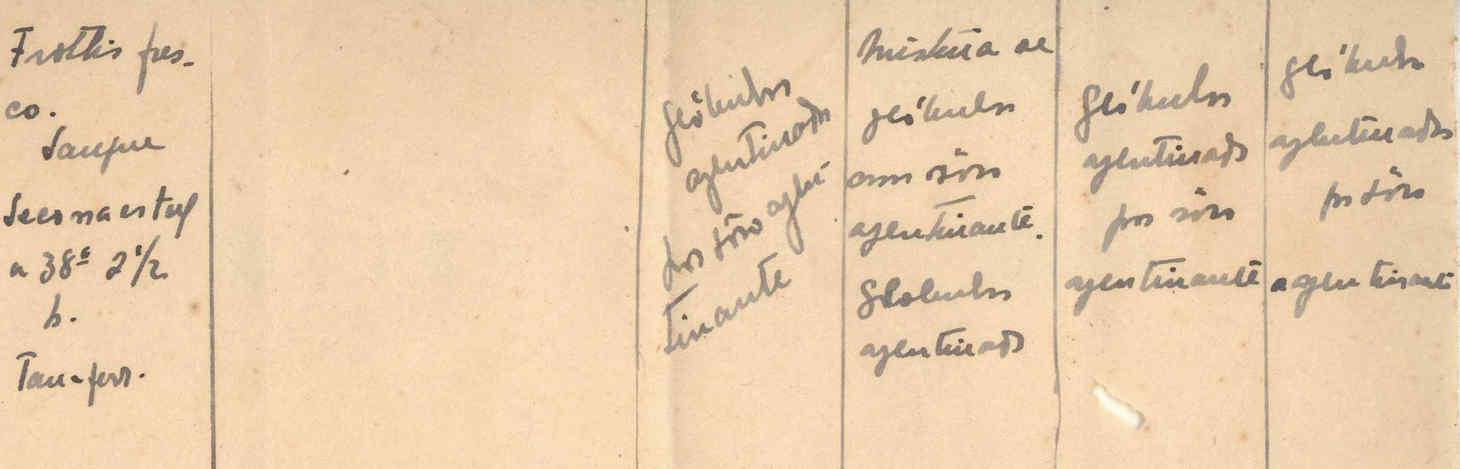 Frottis fres-
co.
Sangue
Seco na estuf
a 38º 2 1/2
h.
Tan-fer.
glóbulos
aglutinados
por sôro aglu
tinante
Mistura de
glóbulos
com sôro
aglutinante.
Globulos
aglutinads
Glóbulos
aglutinads
por sôro
aglutinante
glóbulos
aglutinados
por sôro
aglutinante